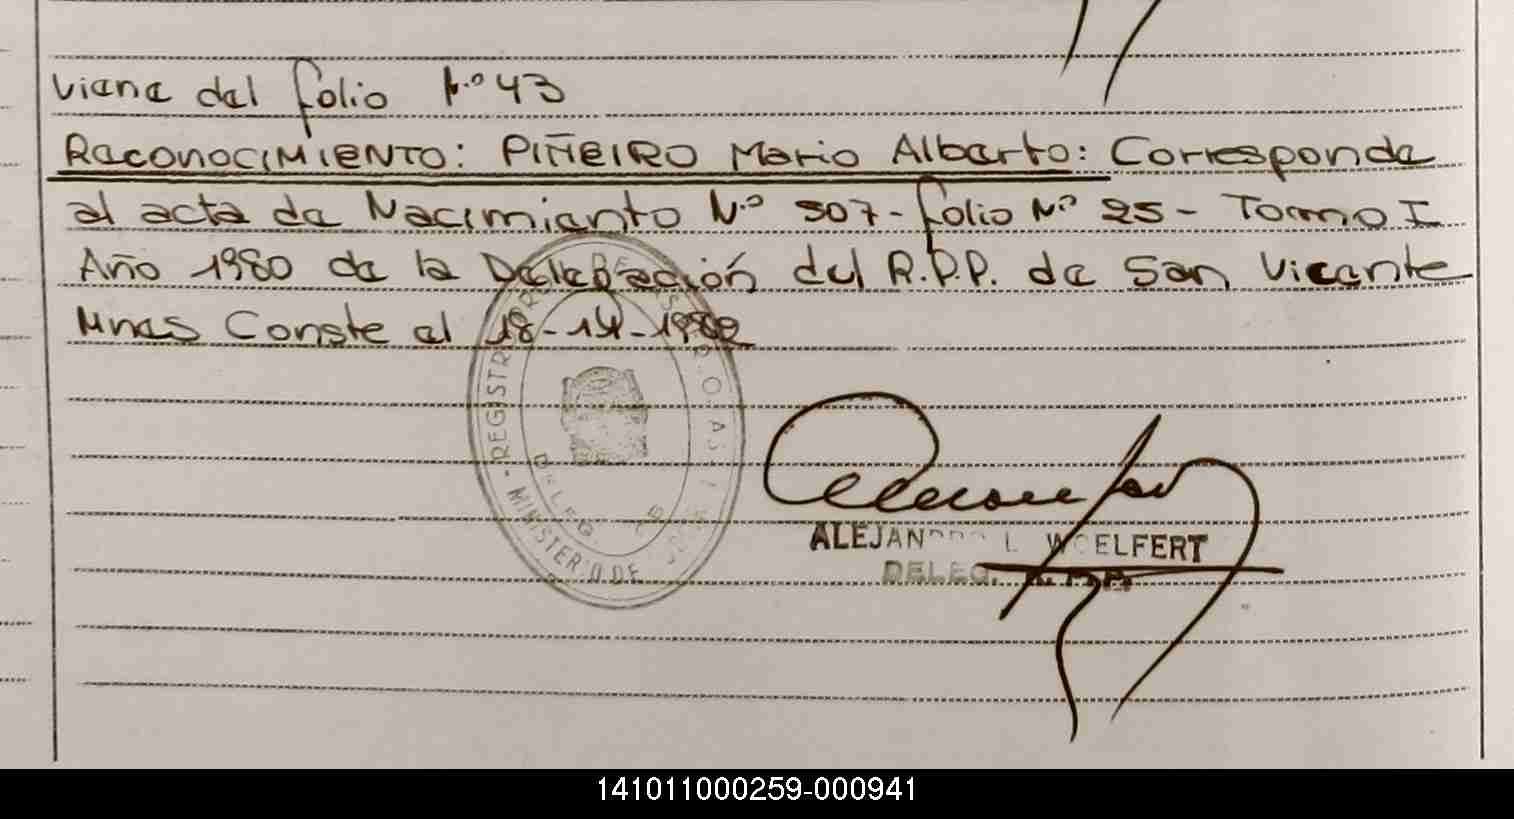 Viene del folio N.º 43
ReconociMieNTO: PIÑEIRO Mario Alberto: Corresponde
al acta de Nacimiento N.º 507- folio N.º 25 - Tomo I
Año 1980 de la Delegación del R.P.P. de San Vicente
Mnes Conste al 18-
REGISTR
MINISTERIO DE
DELEG
ALEJANDRO L. WOELFERT
DELEG. R.P.P.
141011000259-000941